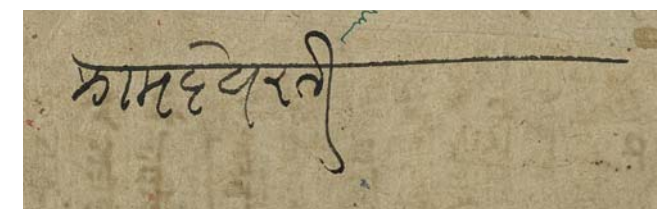 कामदेवरती